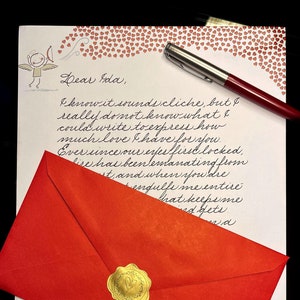 Dear Ida,
I know it sounds cliche, but I
really do not know what I
could write to express how
much love I have for you
Ever since our eyes first locked,
has been emanating from
and when you are
engulfs me entire
that keeps me
gets
a